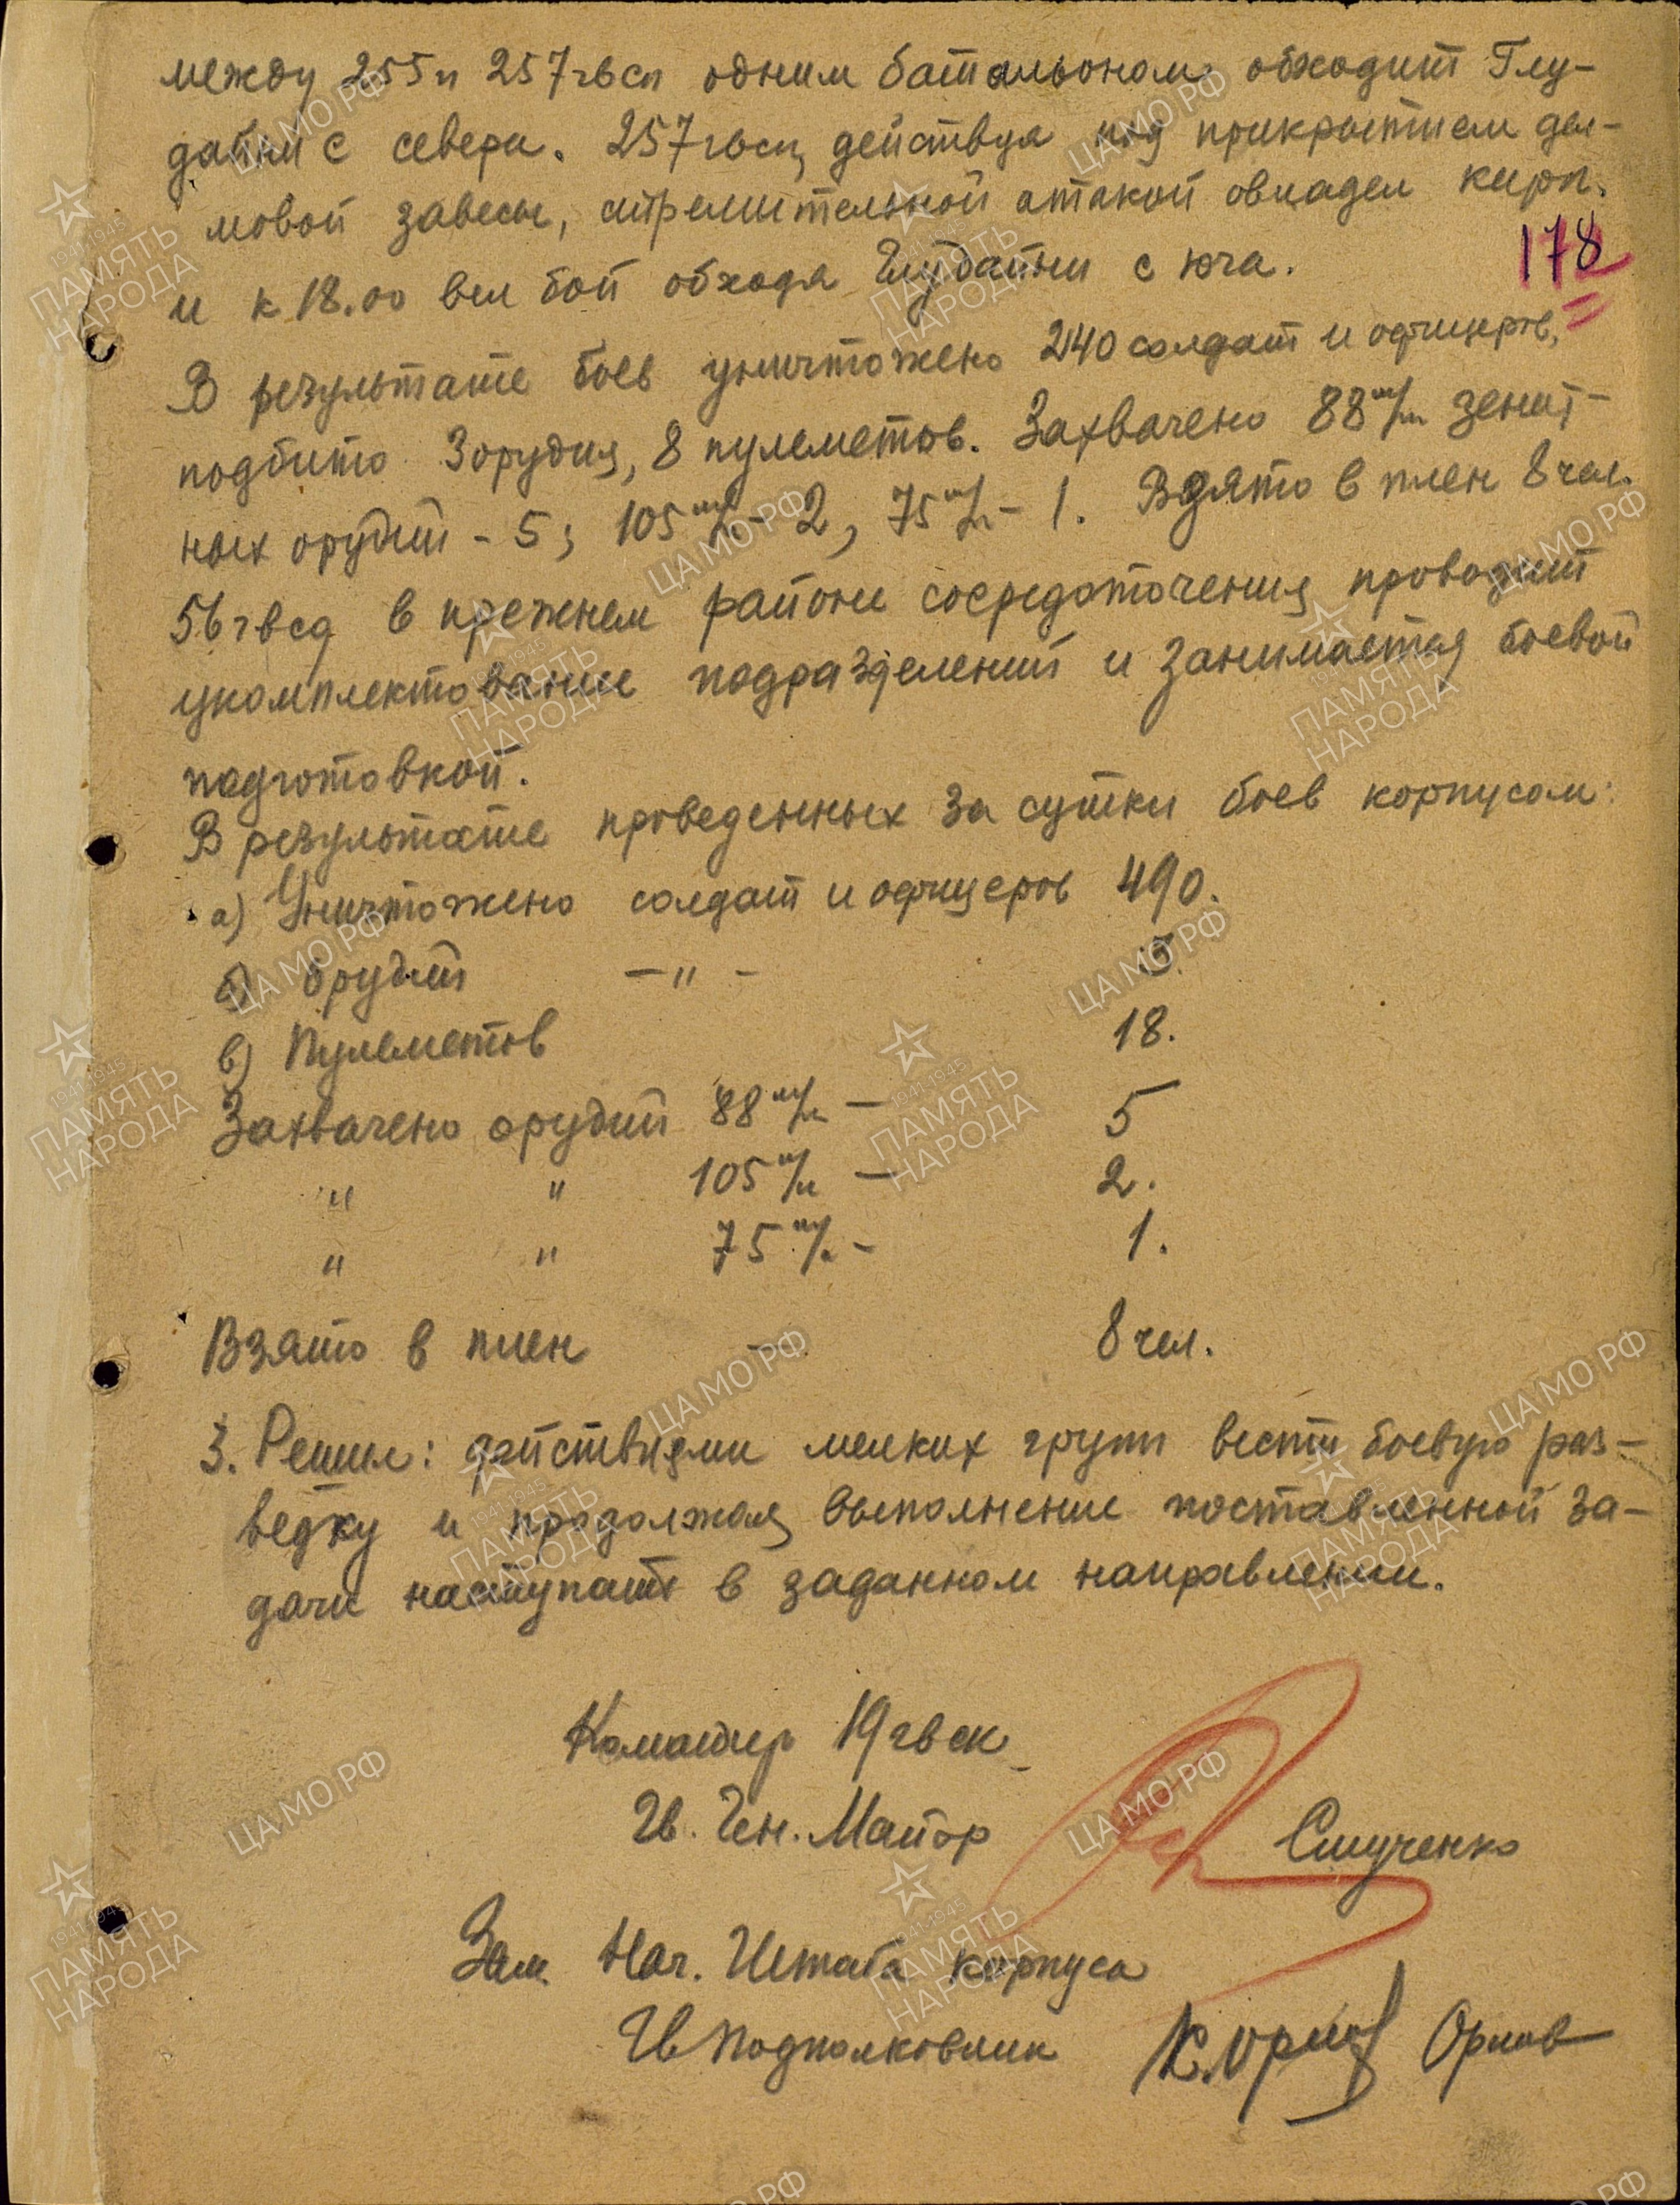 между 255 и 257 гвсп одним батальоном обходит Глу-
дайни с севера. 257 гвсп, действуя под прикрытием ды-
мовой завесы, стремительной атакой овладел кирп.
178
и к 18.00 вел бой обходя Глудайни с юга.
В результате боев уничтожено 240 солдат и офицеров,
подбито 3 орудия, 8 пулеметов. Захвачено 88 м/м зенит-
ных орудий - 5; 105 м/м - 2, 75 м/м - 1. Взято в плен 8 чел.
56 гвсд в прежнем районе сосредоточения проводит
укомплектование подразделений и занимается боевой
подготовкой.
В результате проведенных за сутки боев корпусом:
а) Уничтожено солдат и офицеров 490.
б) Орудий — " —
в) Пулеметов 18.
Захвачено орудий 88 м/м — 5
" " 105 м/м — 2.
" " 75 м/м - 1.
Взято в плен - 8 чел.
3. Решил: действиями мелких групп вести боевую раз-
ведку и продолжая выполнение поставленной за-
дачи наступать в заданном направлении.
Командир 19 гвск
Гв. Ген. Майор Стученко
Зам. Нач. Штаба корпуса
Гв Подполковник К. Орлов Орлов
ЦА МО РФ
1941-1945
ПАМЯТЬ
НАРОДА